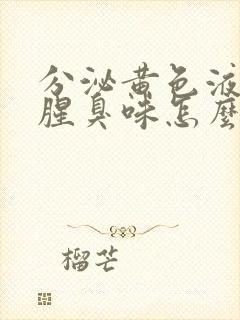 分泌黄色液
腥臭味怎麼
榴芒